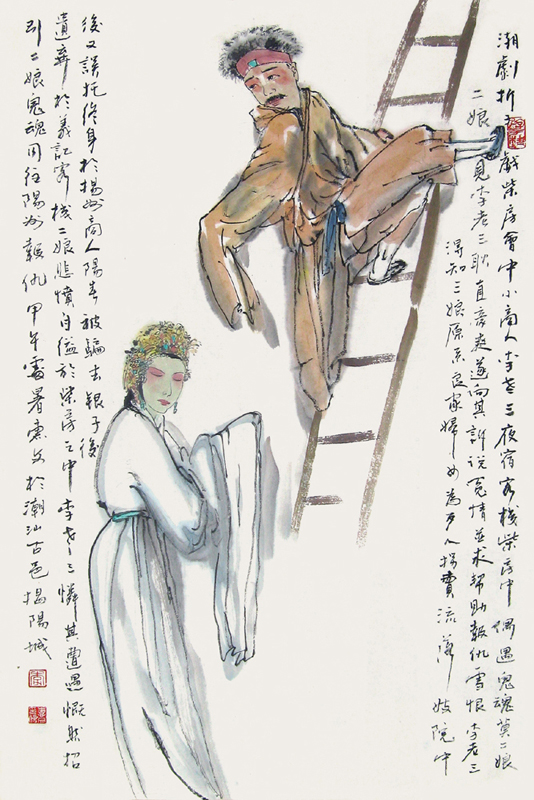 潮劇折子戲柴房會中小商人李老三夜宿客棧柴房中偶遇鬼魂莫二娘
二娘見李老三耿直豪爽遂向其訴説冤情並求幫助報仇雪恨李老三
得知二娘原系良家婦女為歹人掠賣流落妓院中
後又誤托終身於揚州商人陽春被騙去銀子後
遺棄於義記客棧二娘悲憤自縊於柴房之中李老三憐其遭遇慨然招
引二娘鬼魂同往陽州報仇甲午處暑於潮汕古邑揭陽城